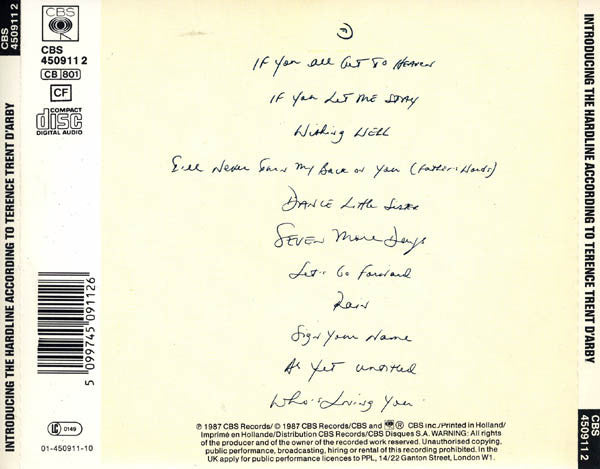 CBS
CBS
450911 2
CB 801
CF
COMPACT
disc
DIGITAL AUDIO
If You All Get To Heaven
If You Let Me Stay
Wishing Well
I'll Never Turn My Back on You (Father's Words)
Dance Little Sister
Seven More Days
Let's Go Forward
Rain
Sign Your Name
As Yet Untitled
Who's Loving You
5 099745 091126
LC 0149
01-450911-10
℗ 1987 CBS Records/ © 1987 CBS Records/CBS and ® CBS Inc./Printed in Holland/
Imprimé en Hollande/Distribution CBS Records/CBS Disques S.A. WARNING: All rights
of the producer and of the owner of the recorded work reserved. Unauthorised copying,
public performance, broadcasting, hiring or rental of this recording prohibited. In the
UK apply for public performance licences to PPL, 14/22 Ganton Street, London W1.
CBS
450911 2
INTRODUCING THE HARDLINE ACCORDING TO TERENCE TRENT D'ARBY
INTRODUCING THE HARDLINE ACCORDING TO TERENCE TRENT D'ARBY
CBS
450911 2